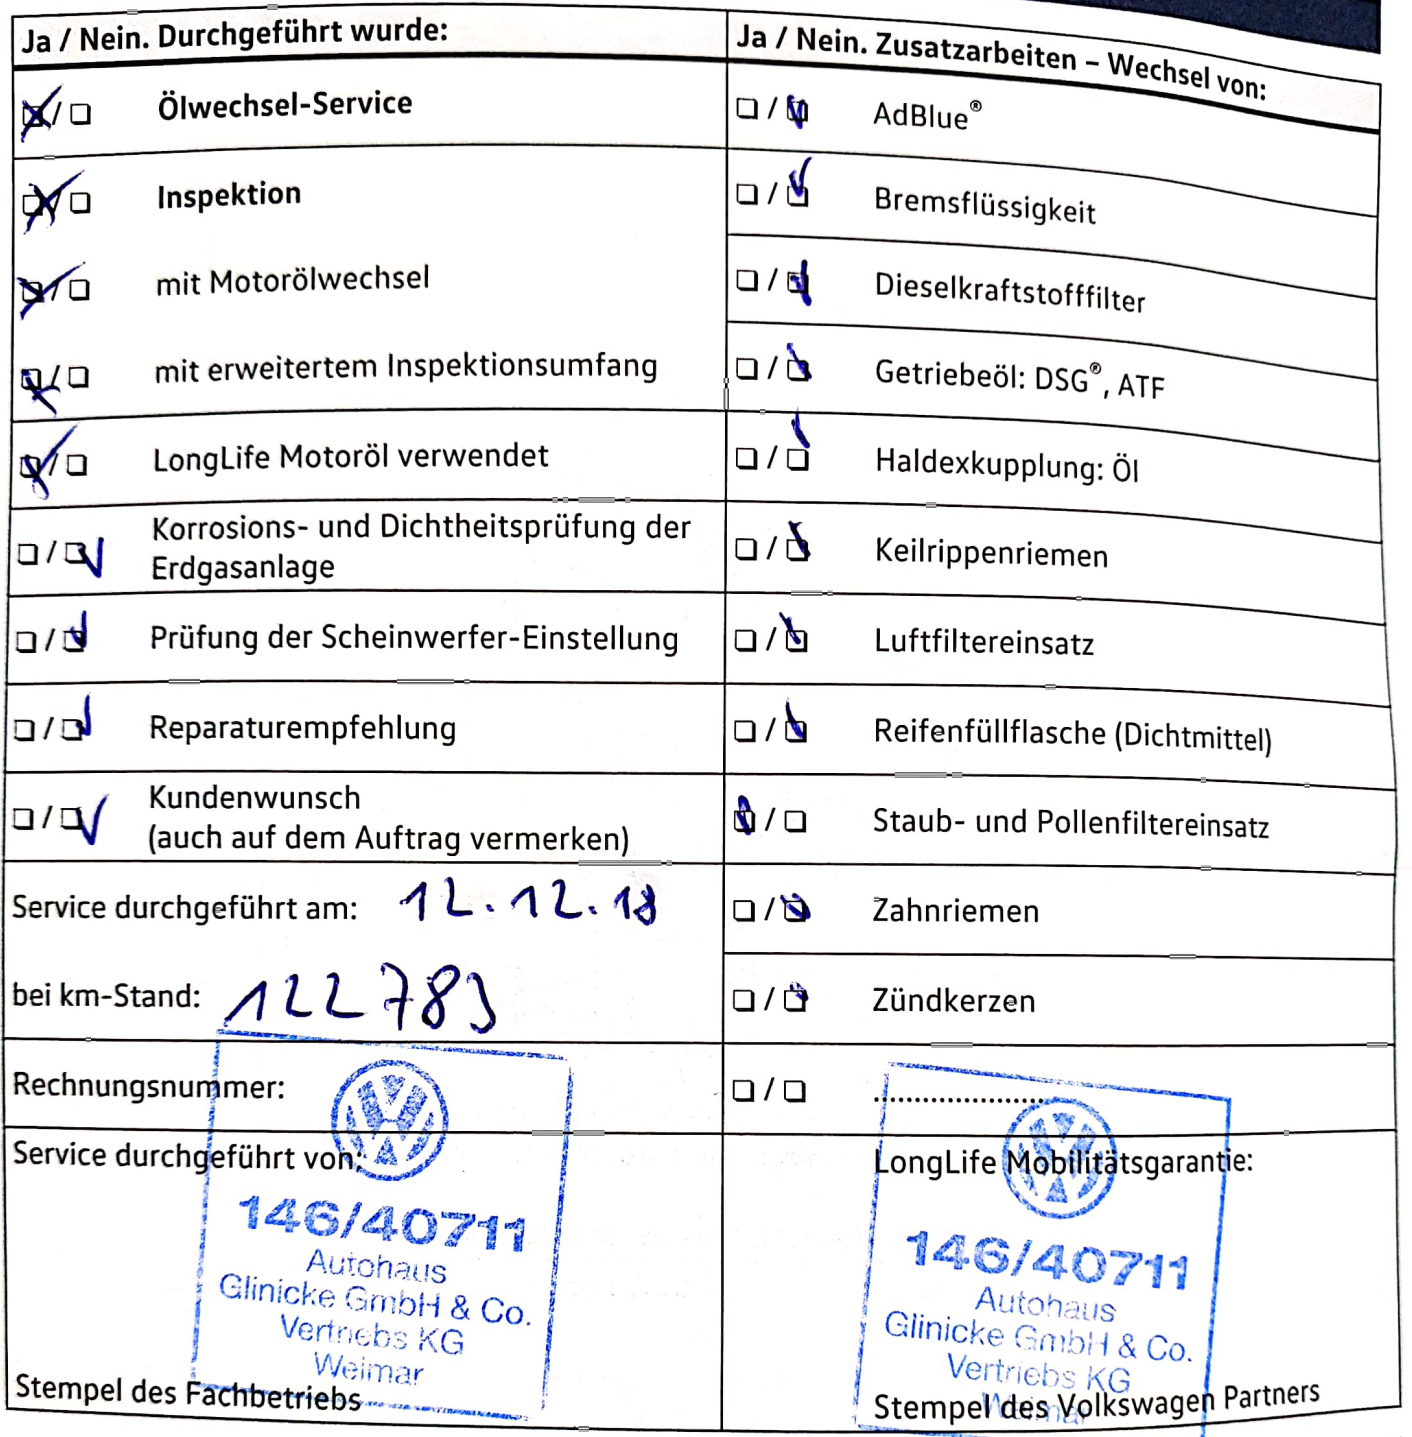 Ja / Nein. Durchgeführt wurde:
Ölwechsel-Service
Inspektion
mit Motorölwechsel
mit erweitertem Inspektionsumfang
LongLife Motoröl verwendet
Korrosions- und Dichtheitsprüfung der
Erdgasanlage
Prüfung der Scheinwerfer-Einstellung
Reparaturempfehlung
Kundenwunsch
(auch auf dem Auftrag vermerken)
Service durchgeführt am: 12.12.18
bei km-Stand: 122783
Rechnungsnummer:
Service durchgeführt von:
146/40711
Autohaus
Glinicke GmbH & Co.
Vertriebs KG
Weimar
Stempel des Fachbetriebs
Ja / Nein. Zusatzarbeiten – Wechsel von:
AdBlue®
Bremsflüssigkeit
Dieselkraftstofffilter
Getriebeöl: DSG®, ATF
Haldexkupplung: Öl
Keilrippenriemen
Luftfiltereinsatz
Reifenfüllflasche (Dichtmittel)
Staub- und Pollenfiltereinsatz
Zahnriemen
Zündkerzen
......................
LongLife Mobilitätsgarantie:
146/40711
Autohaus
Glinicke GmbH & Co.
Vertriebs KG
Weimar
Stempel des Volkswagen Partners